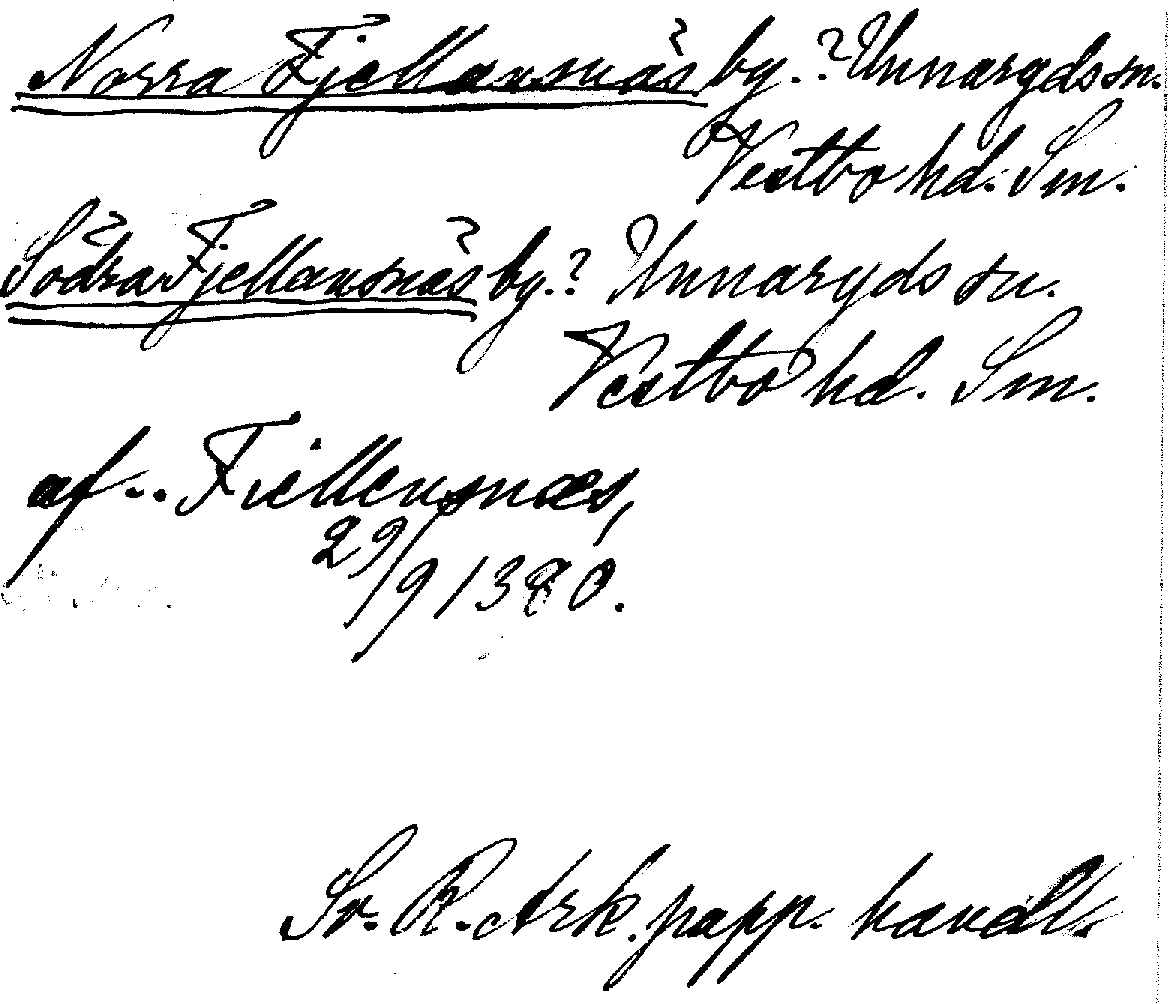 Norra Fjellansnäs by. ? Unnaryds sn.
Vestbo hd. Sm.
Södra Fjellansnäs by. ? Unnaryds sn.
Vestbo hd. Sm.
af .. Fiellensnæs,
29/9 1380.
Sv. R. Ark. papp. handl.